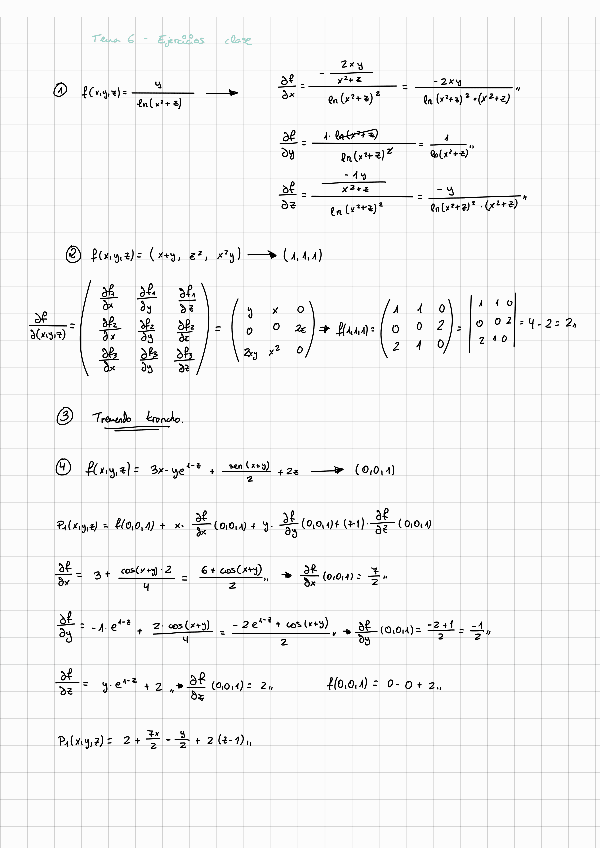 Tema 6 - Ejercicios clase
① f(x,y,z) = y / ln(x²+z) ⟶ ∂f/∂x = (- 2xy/(x²+z)) / ln(x²+z)² = -2xy / (ln(x²+z)² · (x²+z)) „
∂f/∂y = 1 · ln(x²+z) / ln(x²+z)² = 1 / ln(x²+z) „
∂f/∂z = (-1y/(x²+z)) / ln(x²+z)² = -y / (ln(x²+z)² · (x²+z)) „
② f(x,y,z) = (x+y, z², x²y) ⟶ (1,1,1)
∂f/∂(x,y,z) = ( ∂f₁/∂x ∂f₁/∂y ∂f₁/∂z ; ∂f₂/∂x ∂f₂/∂y ∂f₂/∂z ; ∂f₃/∂x ∂f₃/∂y ∂f₃/∂z ) = ( y x 0 ; 0 0 2z ; 2xy x² 0 ) → f(1,1,1) = ( 1 1 0 ; 0 0 2 ; 2 1 0 ) = | 1 1 0 ; 0 0 2 ; 2 1 0 | = 4 - 2 = 2 „
③ Tremendo troncho.
④ f(x,y,z) = 3x - ye¹⁻ᶻ + sen(x+y)/2 + 2z ⟶ (0,0,1)
P₁(x,y,z) = f(0,0,1) + x · ∂f/∂x (0,0,1) + y · ∂f/∂y (0,0,1) + (z-1) · ∂f/∂z (0,0,1)
∂f/∂x = 3 + cos(x+y) · 2 / 4 = 6 + cos(x+y) / 2 „ → ∂f/∂x (0,0,1) = 7/2 „
∂f/∂y = -1 · e¹⁻ᶻ + 2 · cos(x+y) / 4 = -2e¹⁻ᶻ + cos(x+y) / 2 „ → ∂f/∂y (0,0,1) = -2+1 / 2 = -1/2 „
∂f/∂z = y · e¹⁻ᶻ + 2 „ → ∂f/∂z (0,0,1) = 2 „ f(0,0,1) = 0 - 0 + 2 „
P₁(x,y,z) = 2 + 7x/2 - y/2 + 2(z-1) „